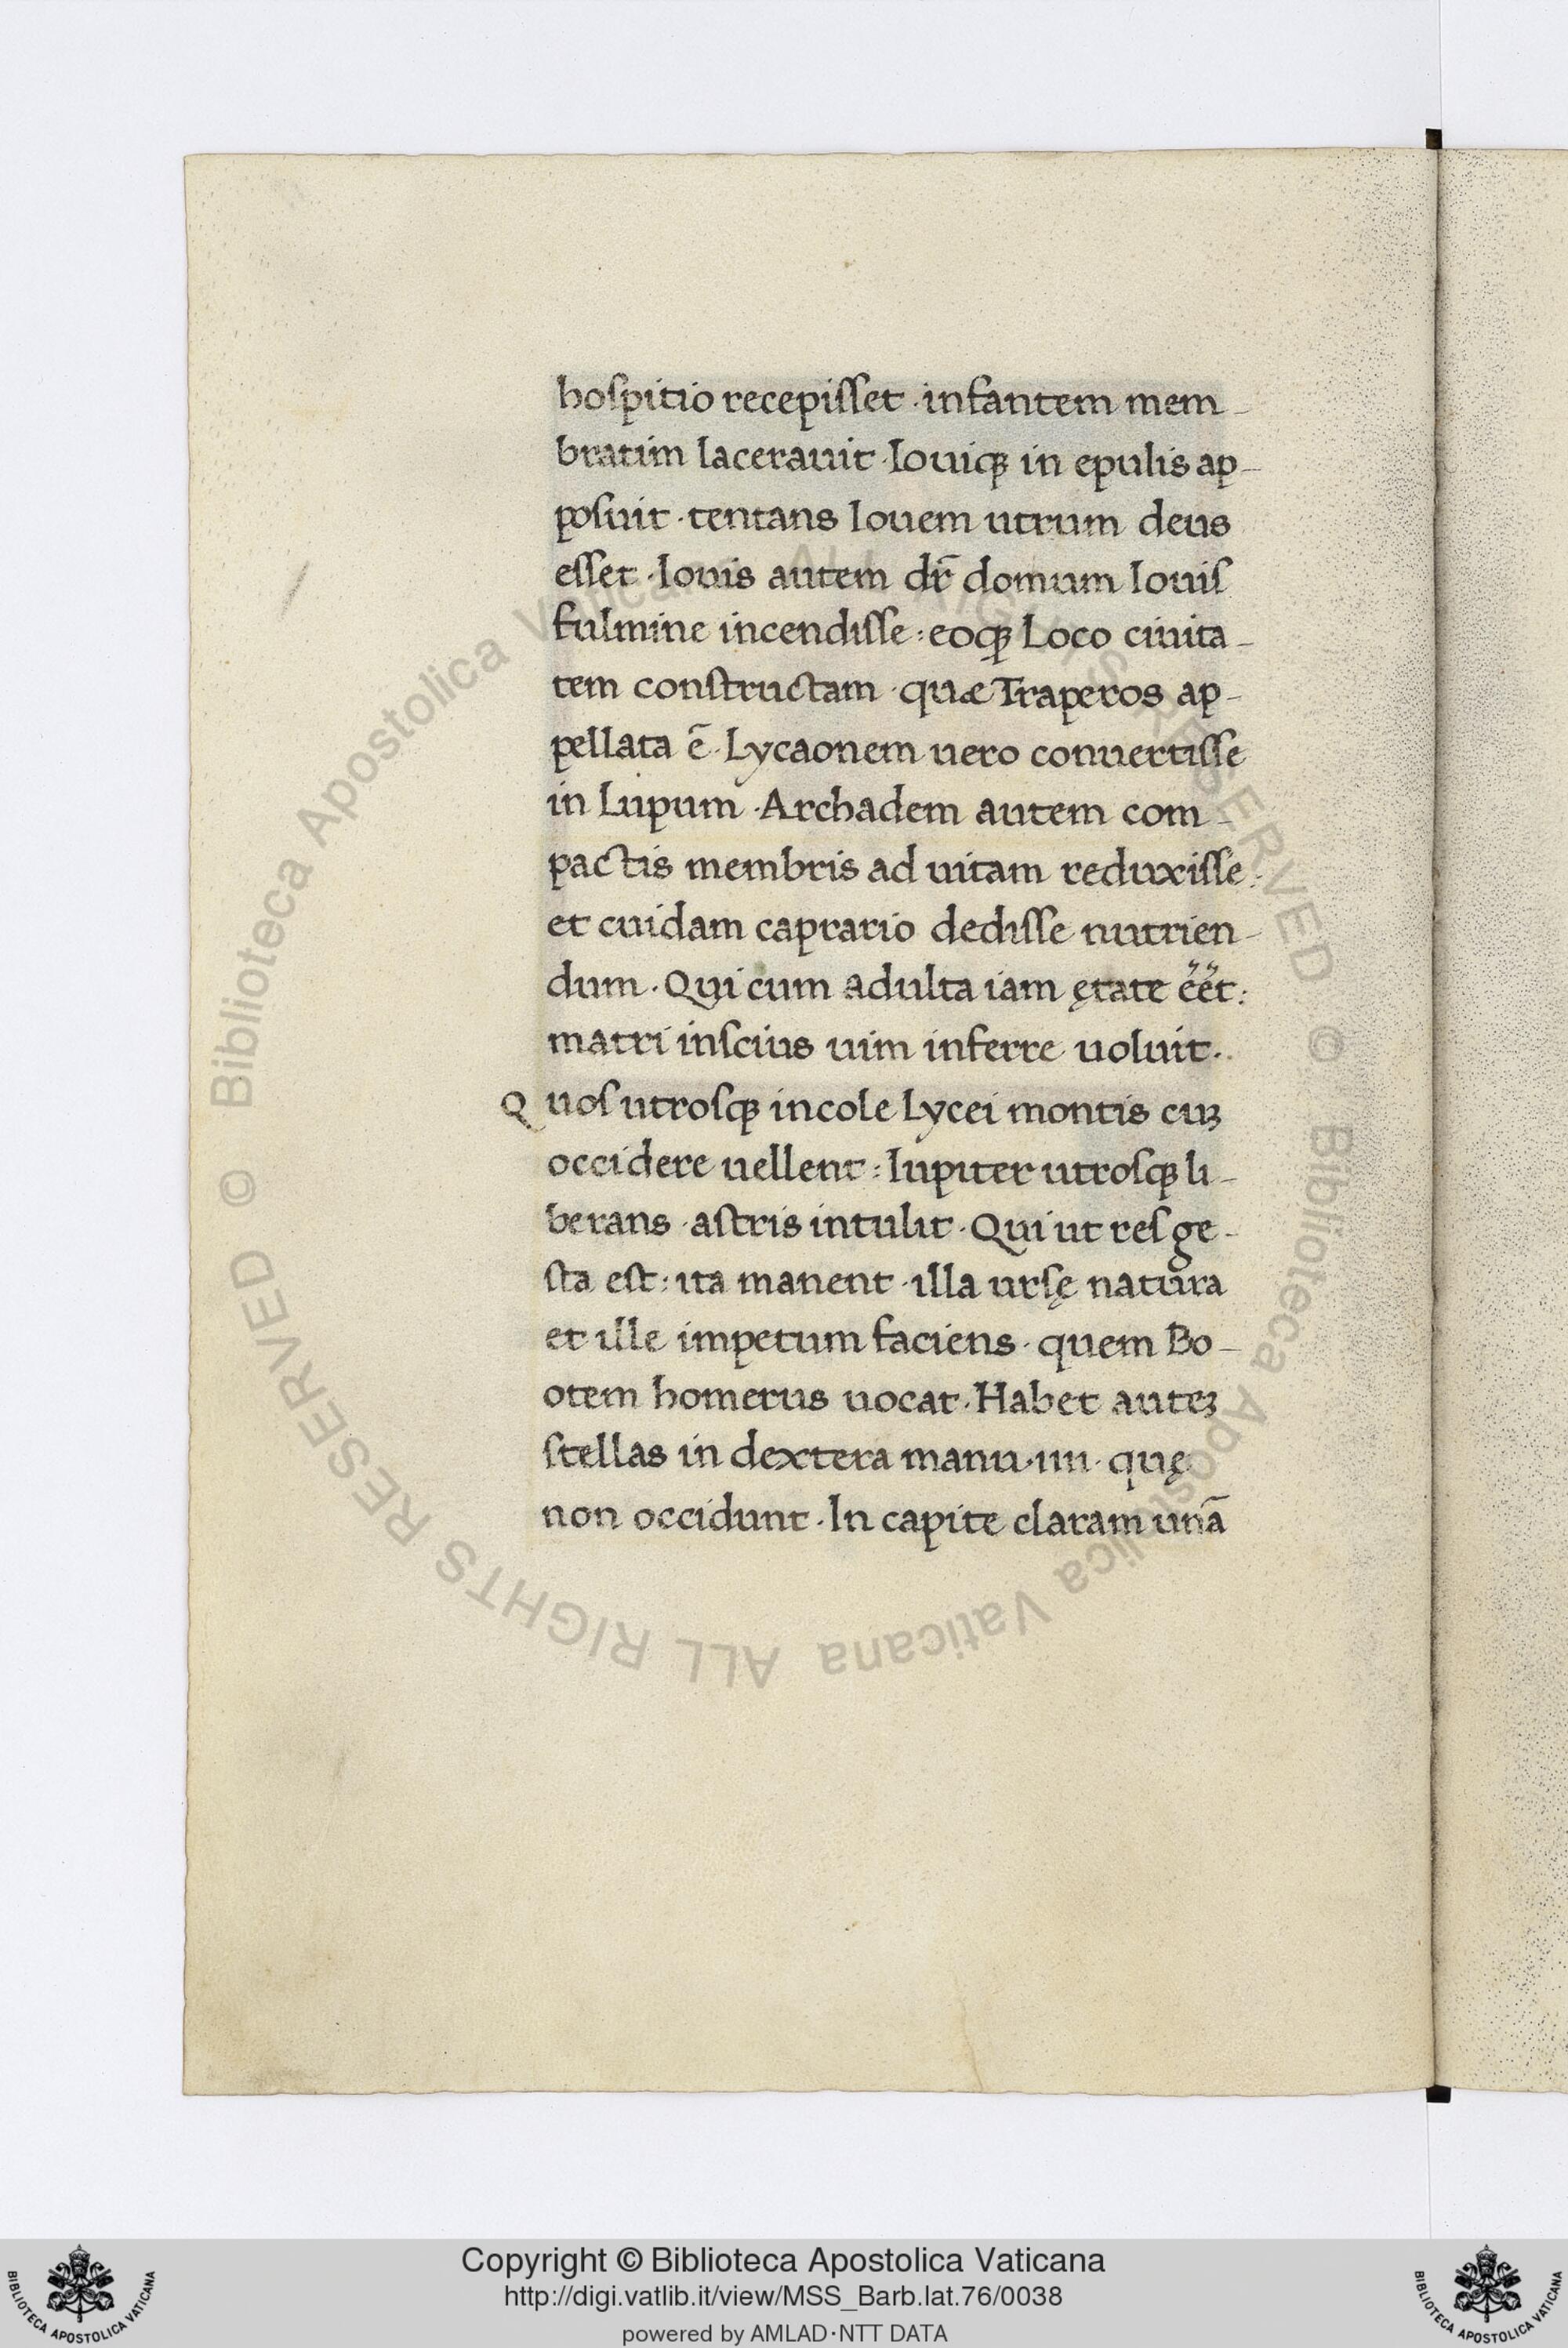 hoſpitio recepiſſet · infantem mem-
bratim lacerauit · Iouiqꝫ in epulis ap-
poſuit · tentans Iouem utrum deus
eſſet · Iouis autem dr̄ domum Iouiſ
fulmine incendiſſe : eoqꝫ Loco ciuita-
tem conſtructam · quæ Traperos ap-
pellata ē · Lycaonem uero conuertiſſe
in Lupum · Archadem autem com-
pactis membris ad uitam reduxiſſe :
et cuidam caprario dediſſe nutrien-
dum · Qui cum adulta iam ętate e̋e̋t :
matri inſcius uim inferre uoluit ·
Quoſ utroſqꝫ incole Lycei montis cuꝫ
occidere uellent : Iupiter utroſqꝫ li-
berans · aſtris intulit · Qui ut reſ ge-
ſta eſt : ita manent · illa urſę natura
et ille impetum faciens · quem Bo-
otem homerus uocat · Habet auteꝫ
ſtellas in dextera manu · iiii · quę
non occidunt · In capite claram unā
Biblioteca Apostolica Vaticana ALL RIGHTS RESERVED © Biblioteca Apostolica Vaticana ALL RIGHTS RESERVED ©
Copyright © Biblioteca Apostolica Vaticana
http://digi.vatlib.it/view/MSS_Barb.lat.76/0038
powered by AMLAD·NTT DATA
BIBLIOTECA APOSTOLICA VATICANA
BIBLIOTECA APOSTOLICA VATICANA